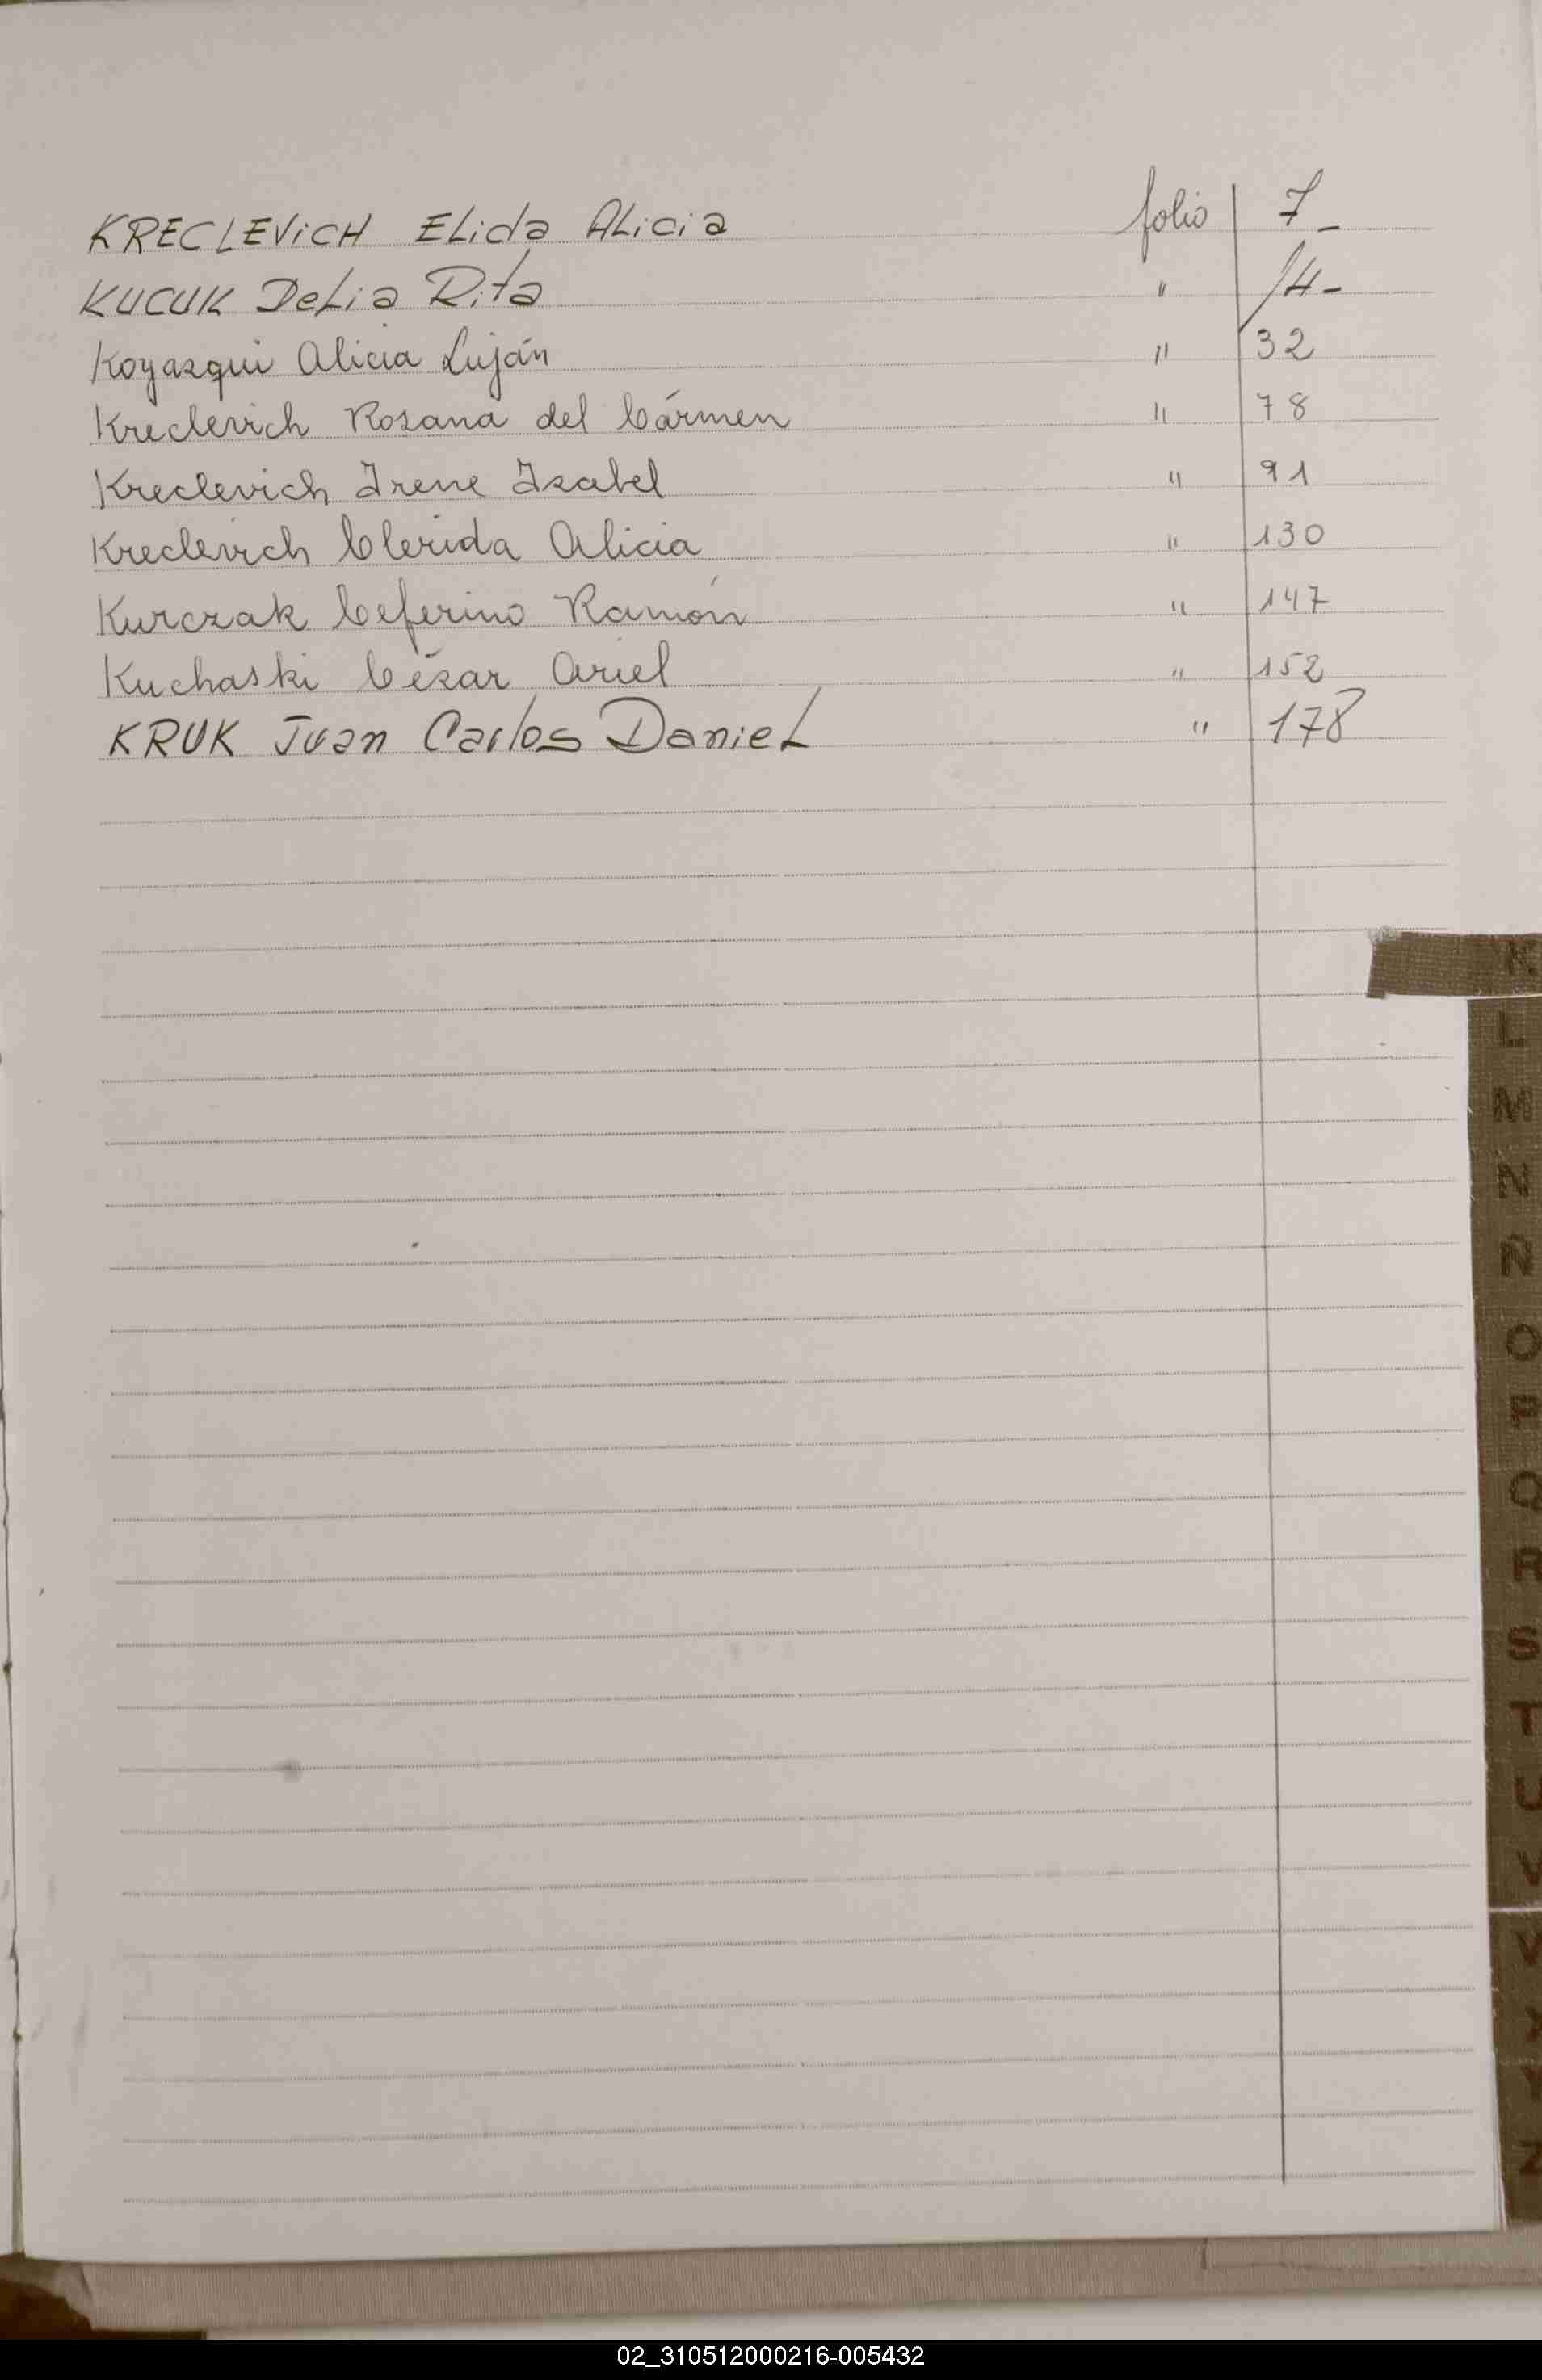 KRECLEVICH Elida Alicia folio 7_
KUCUK Delia Rita " 14-
Koyazqui Alicia Luján " 32
Kreclevich Rosana del Cármen " 78
Kreclevich Irene Isabel " 91
Kreclevich Clerida Alicia " 130
Kurczak Ceferino Ramón " 147
Kuchaski César Ariel " 152
KRUK Juan Carlos Daniel " 178
K
L
M
N
Ñ
O
P
Q
R
S
T
U
V
Z
02_310512000216-005432